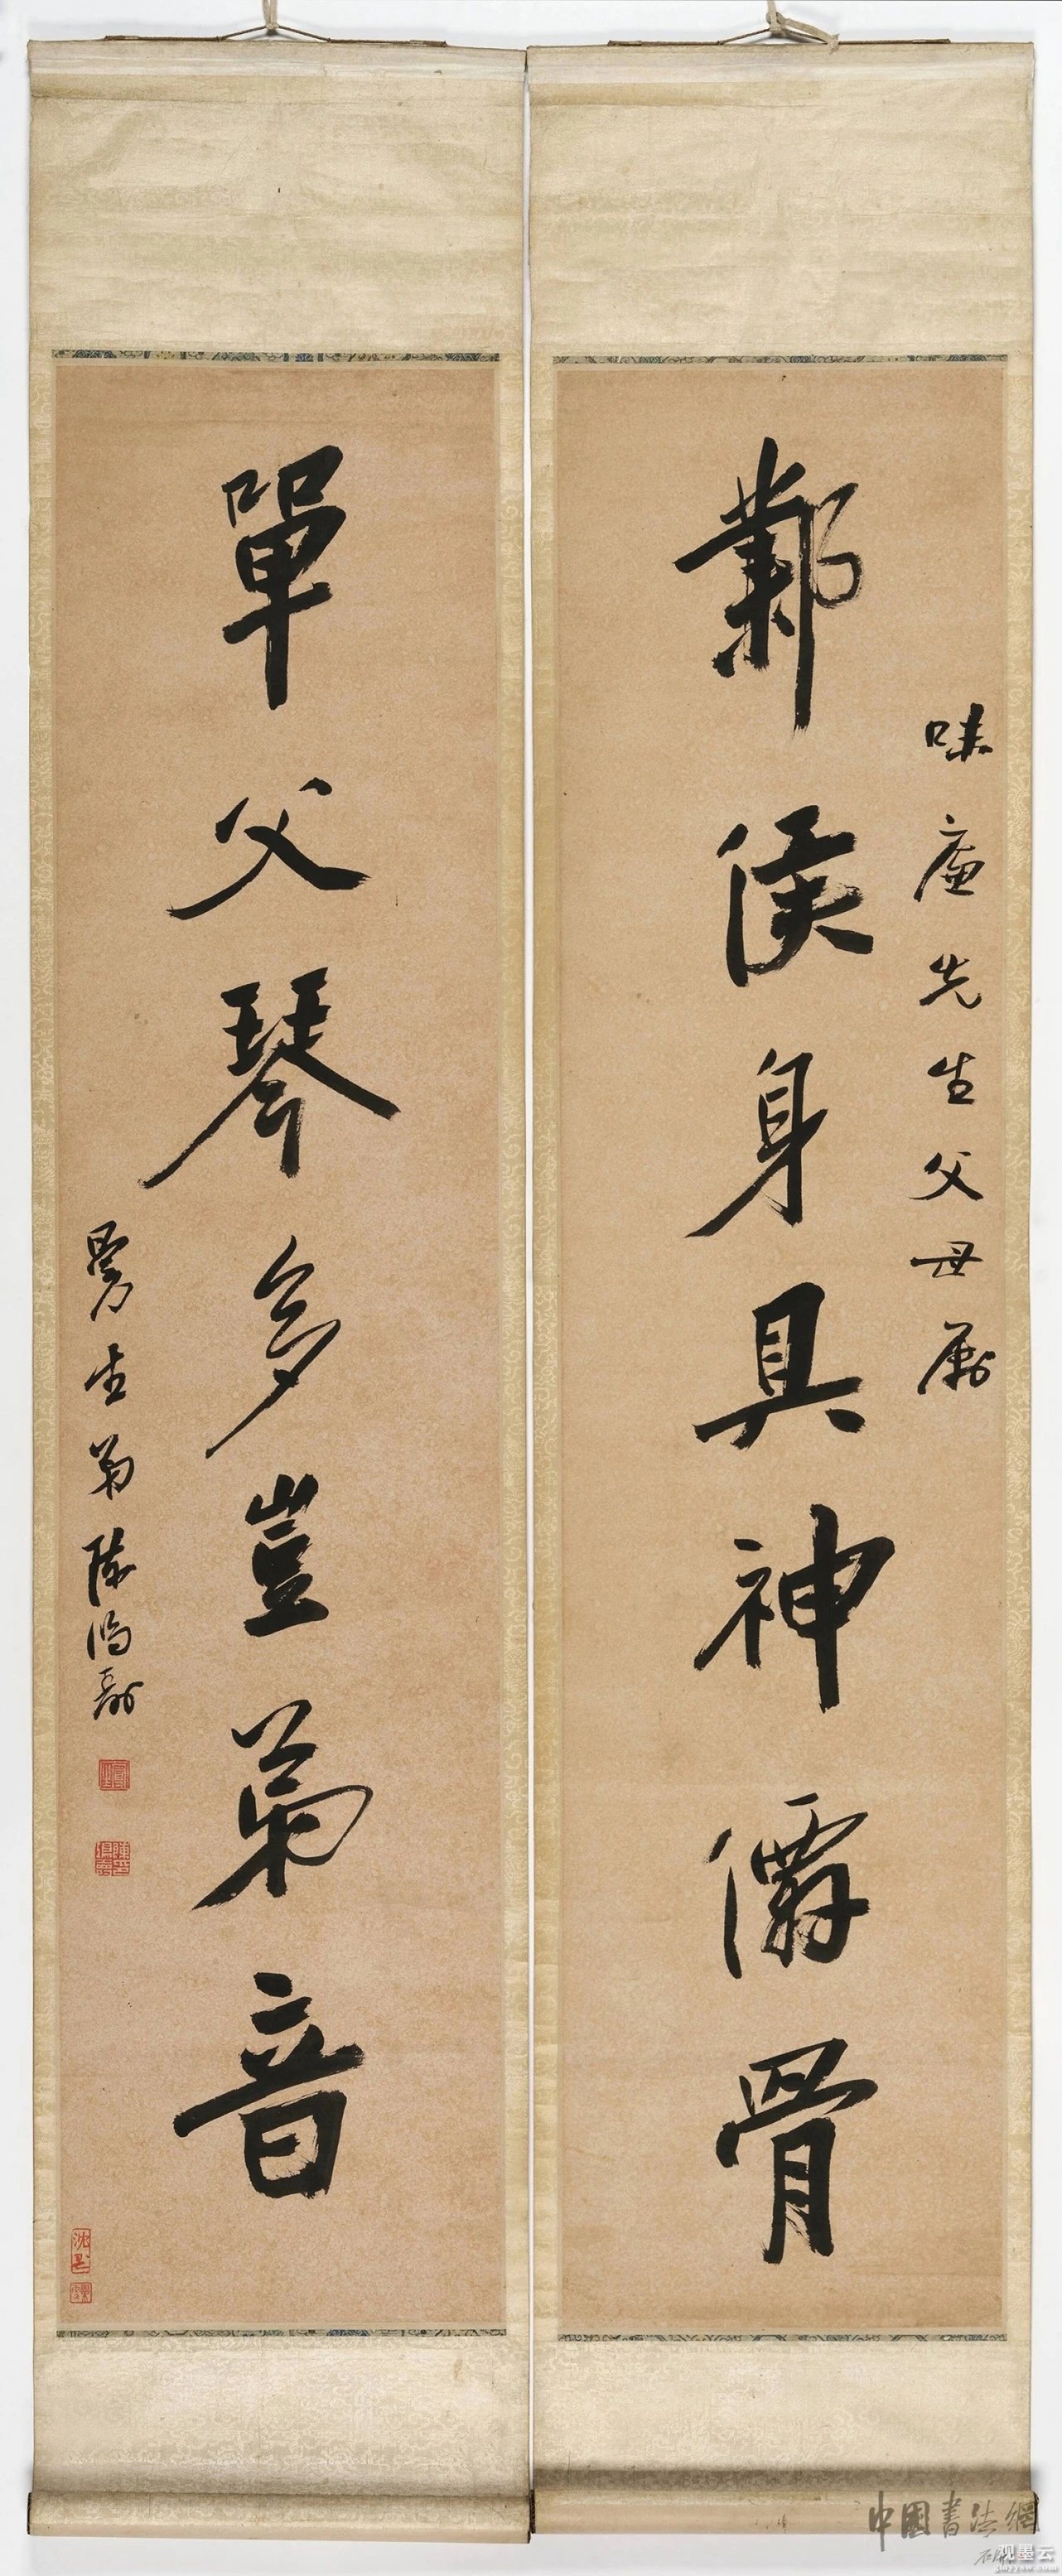 味廬先生父母屬
鄴侯身具神僊骨
單父琴多豈弟音
曼生弟陳鴻壽
中國書法網
观墨云